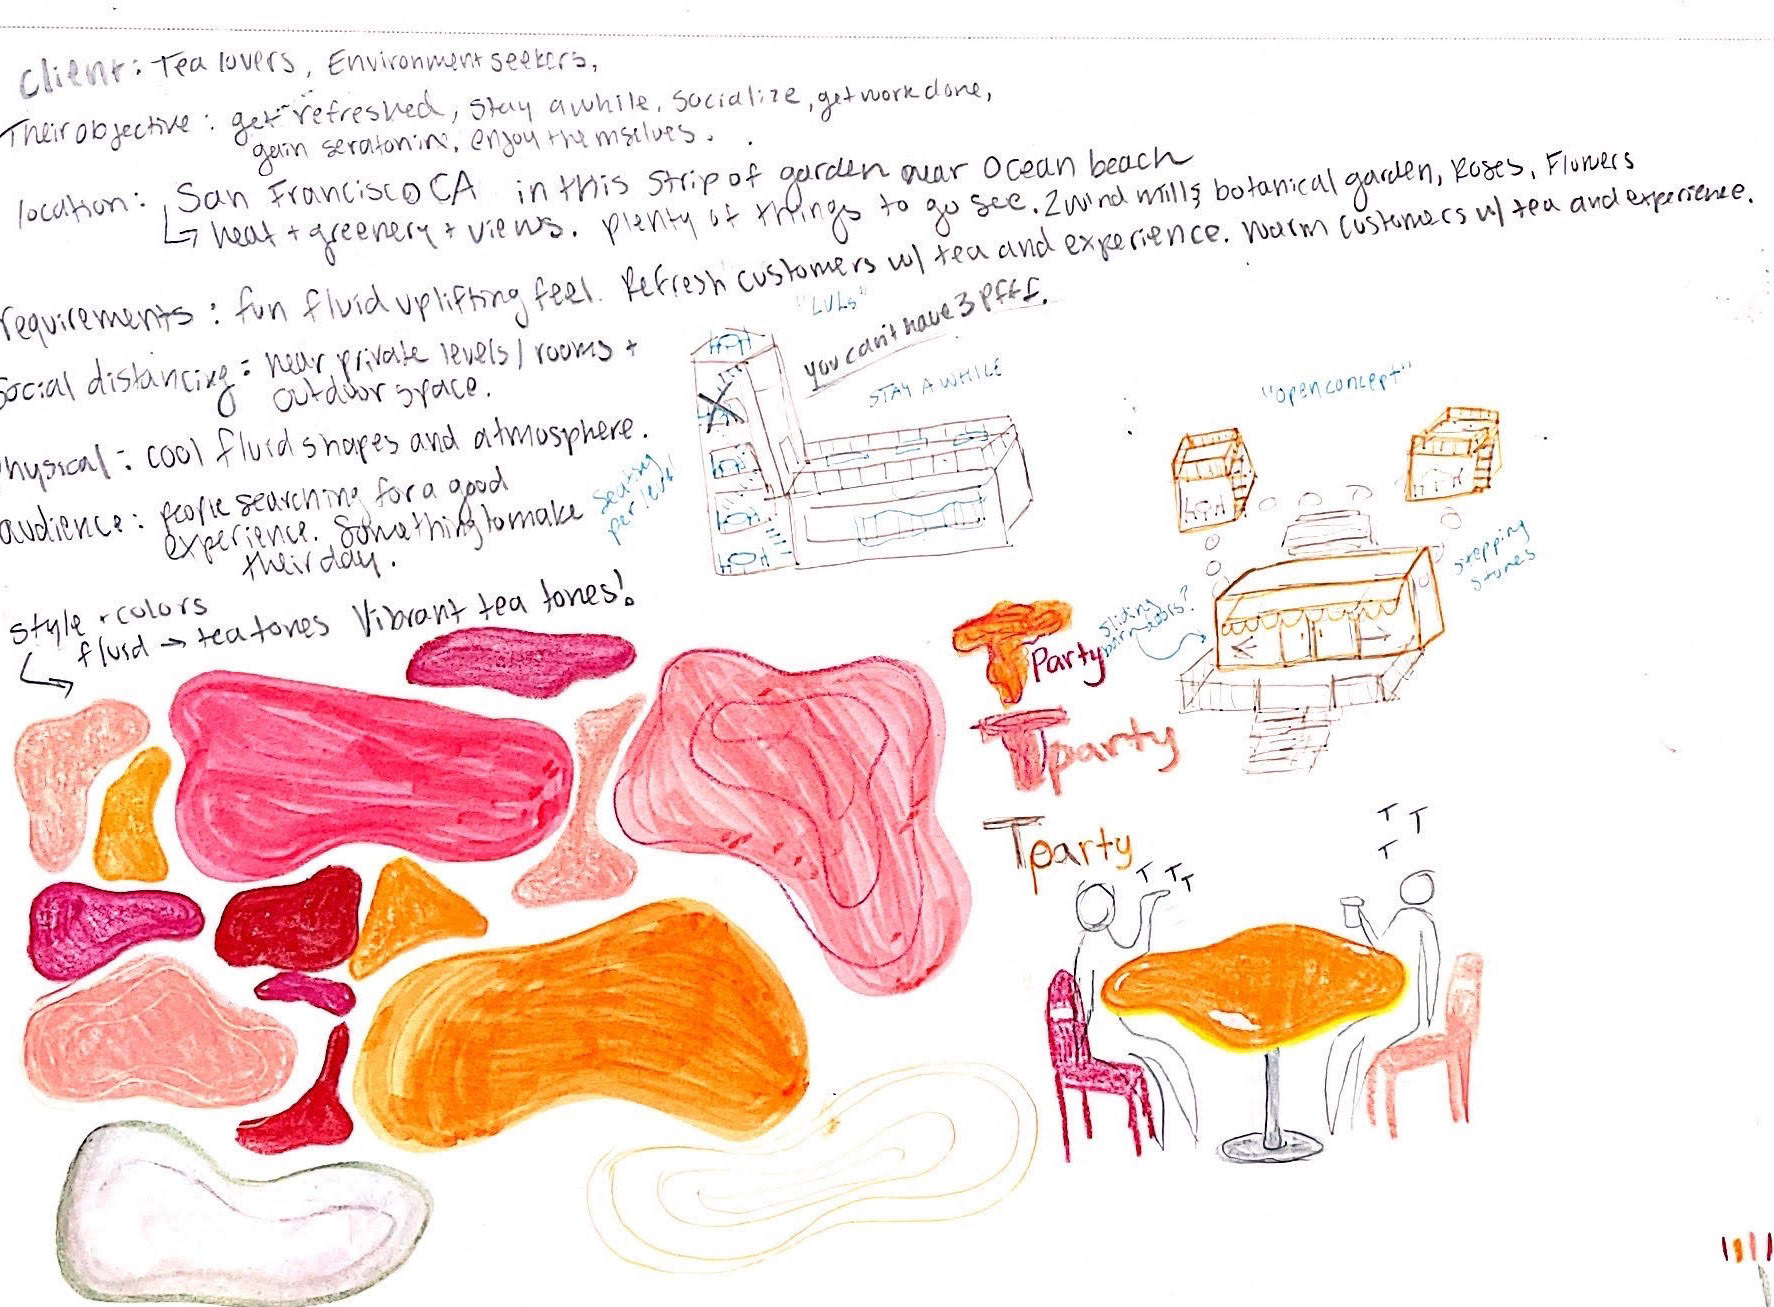 Client: Tea lovers, Environment seekers,
Their objective: get refreshed, stay awhile, socialize, get work done,
gain seratonin, enjoy themselves.
location: San Francisco CA in this strip of garden near Ocean beach
heat + greenery + views. plenty of things to go see. 2 wind mills, botanical garden, Roses, Flowers
requirements: fun fluid uplifting feel. Refresh customers w/ tea and experience. Warm customers w/ tea and experience.
Social distancing: near private levels/rooms +
outdoor space.
Physical: cool fluid shapes and atmosphere.
audience: people searching for a good
experience. Something to make
their day.
style + colors
fluid → tea tones Vibrant tea tones!
"LVLs"
you can't have 3 pfff.
STAY A WHILE
seating
per level
"open concept"
stepping
stones
sliding
barn doors?
T Party
Tparty
Tparty
T T T
T T
T